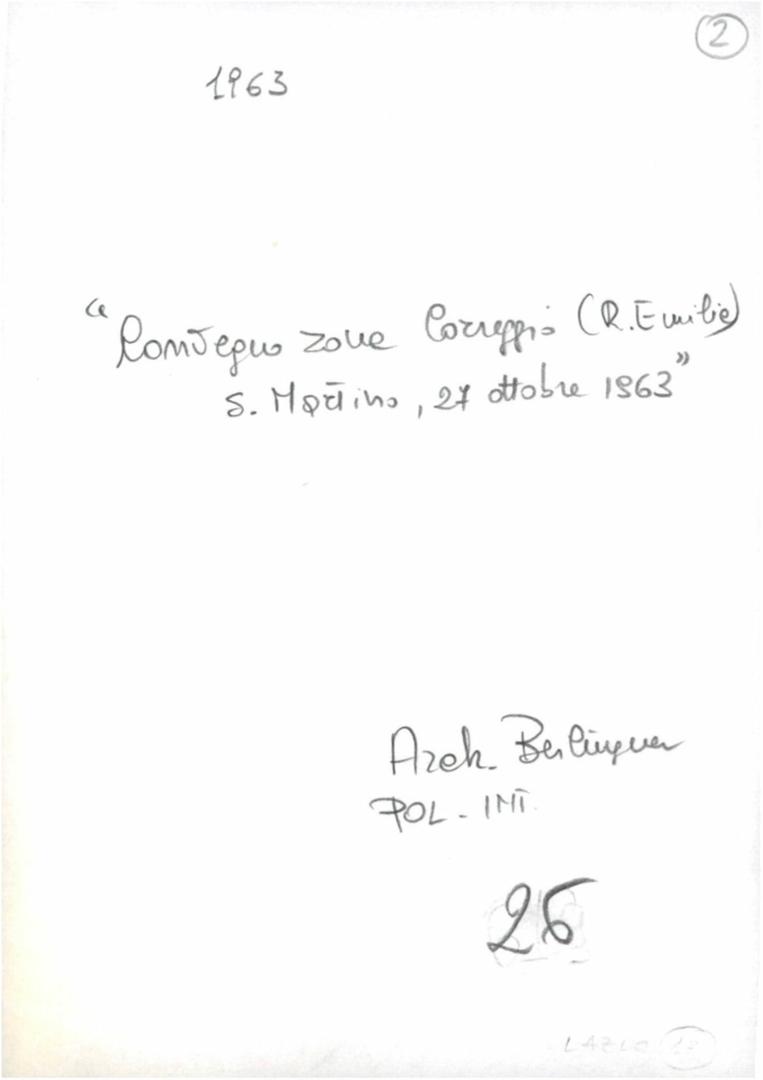 2
1963
"Convegno zone Correggio (R. Emilie)
S. Martino, 27 ottobre 1963"
Arch. Berlinguer
POL - INT.
26
LAZIO